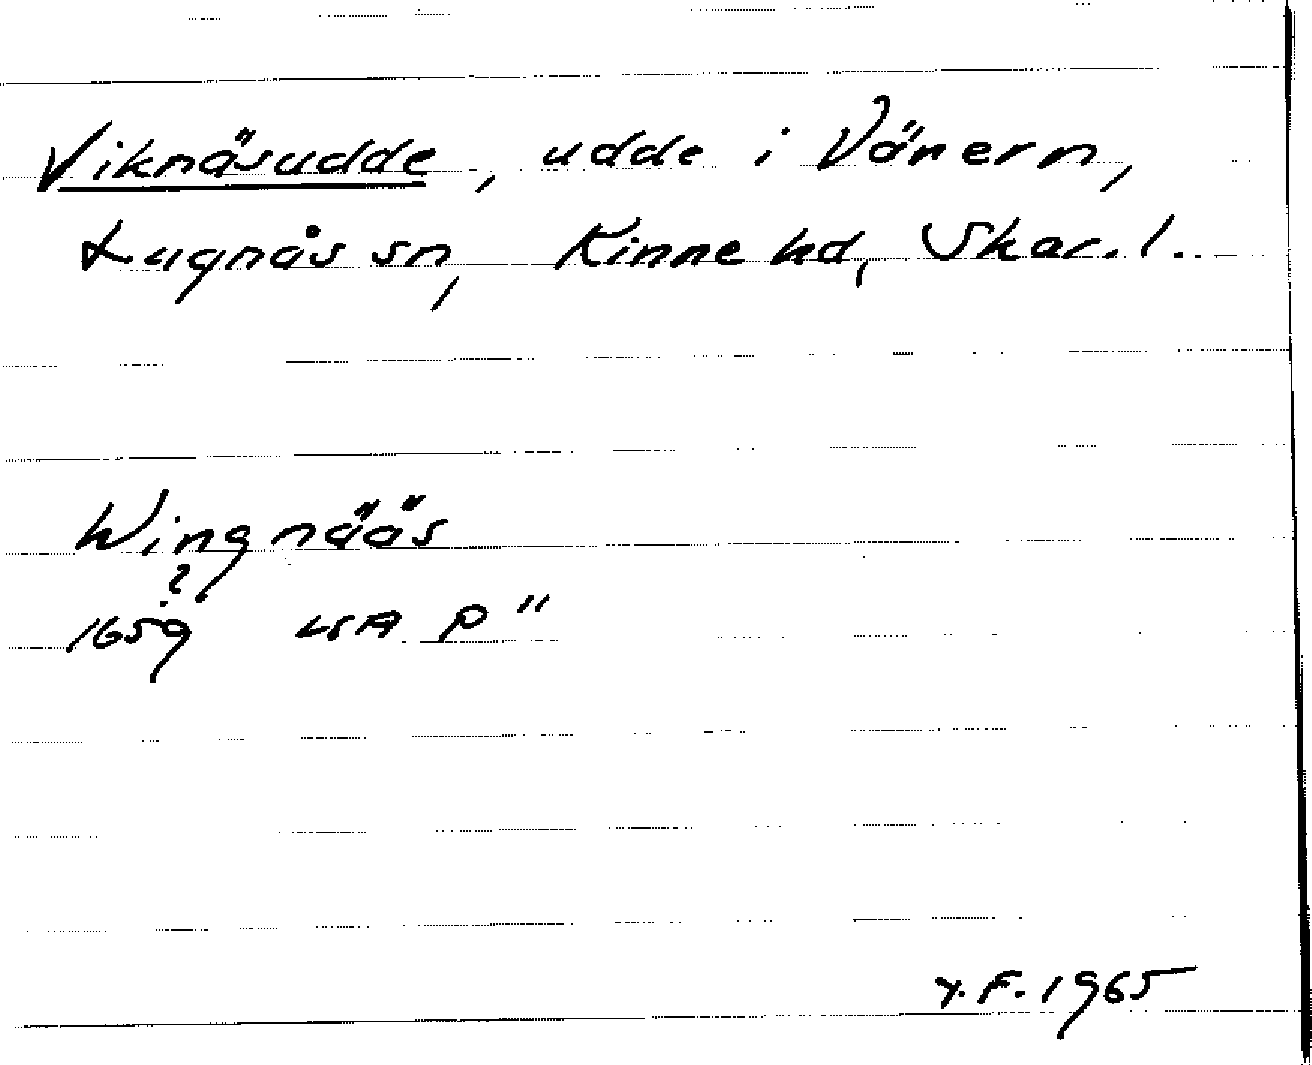 Viknäsudde, udde i Vänern,
Lugnås sn, Kinne hd, Skar. l.
Wingnääs
?
1659 LSA P"
Y.F. 1965